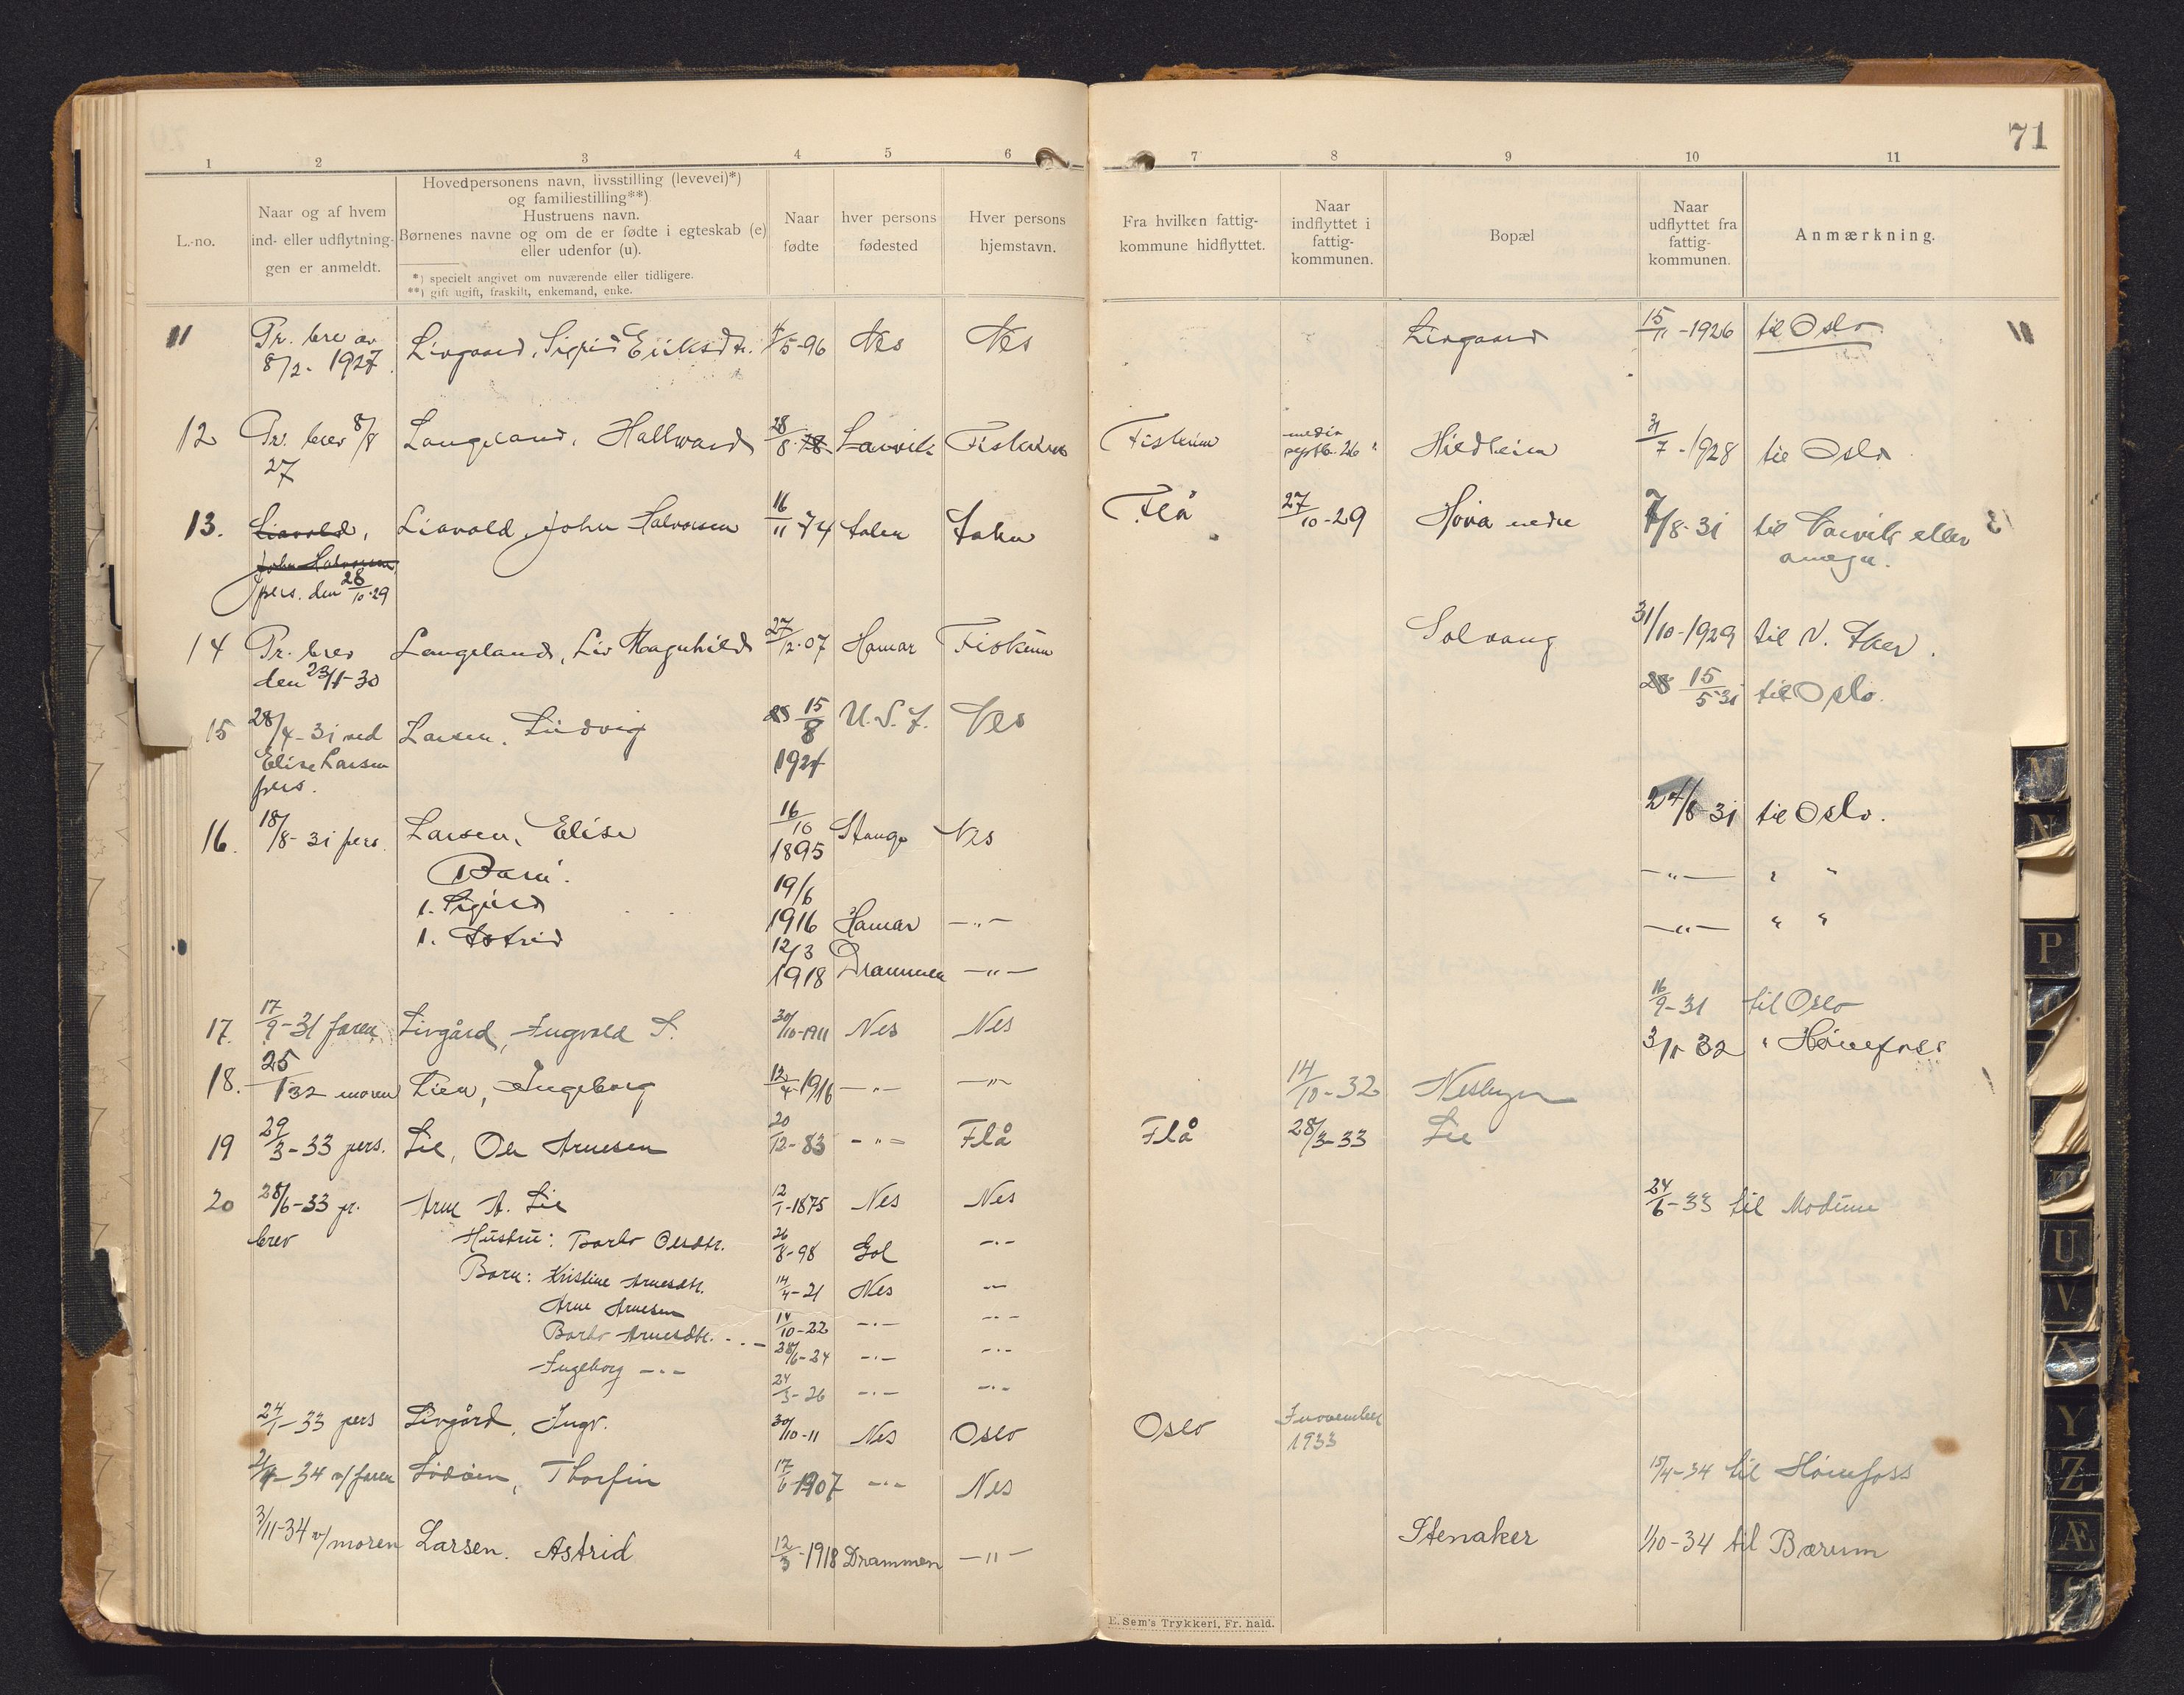 71
1 2 3 4 5 6 7 8 9 10 11
L.-no.
Naar og af hvem
ind- eller udflytnin-
gen er anmeldt.
Hovedpersonens navn, livsstilling (levevei)*)
og familiestilling**)
Hustruens navn.
Børnenes navne og om de er fødte i egteskab (e)
eller udenfor (u).
*) specielt angivet om nuværende eller tidligere.
**) gift ugift, fraskilt, enkemand, enke.
Naar
fødte
hver persons
fødested
Hver persons
hjemstavn.
Fra hvilken fattig-
kommune hidflyttet.
Naar
indflyttet i
fattig-
kommunen.
Bopæl
Naar
udflyttet fra
fattig-
kommunen.
Anmærkning.
11 Pr. brev av Livgaard, Sigrid Eriksdtr. /5-96 Nes Nes Livgaard 15/11-1926 til Oslo
8/2. 1927
12 Pr. brev 8/8 Langeland, Hallvard 28/8 Fiskum Fiskum 26 31/7-1928 til Oslo
27
13. Liavold, Liavold, John Halvorsen 16/11 74 Flå 27/10-29 Hova nedre 7/8-31 til eller
John Halvorsen, omegn.
pers. den 28/10-29
14 Pr. brev Langeland, Liv Magnhild 27/2-07 Hamar Fiskum Solvang 31/10-1929 til V. Aker.
den 23/1-30
15 28/4-31 ved Larsen, Ludvig 15/8 U.S. Nes 15/5 31 til Oslo.
Elise Larsen 1924
pers.
16. 18/8-31 pers. Larsen, Elise 16/10 Stange Nes 24/8-31 til Oslo.
1895
Barn: 19/6 — " — " "
1. Sigurd 1916 Hamar — " — — " — " "
1. Astrid 12/3
1918 Drammen — " —
17. 17/9-31 faren Livgård, Ingvald S. 30/10-1911 Nes Nes 16/9-31 til Oslo
18. 25/1 32 moren Lien, Ingeborg 12/4-1916 — " — — " — 14/10-32 Nesbyen 3/11 32 " Hønefoss
19 29/3-33 pers. Lie, Ole Arnesen 20/12-83 — " — Flå Flå 28/3-33 Lie
20 28/6-33 pr. Arne A. Lie 12/1-1875 Nes Nes 24/6-33 til Modum
brev Hustru: Barbo Olesdtr. 26/8-98 Gol — " —
Barn: Kristine Arnesdtr. 14/4-21 Nes —
Arne Arnesen 14/10-22 — " — — " —
Barbo Arnesdtr. 28/6-24 — " — — " —
Ingeborg — " — 24/3-26 — " — — " —
24/1-33 pers Livgård, Ingv. 30/10-11 Nes Oslo Oslo I november
1933
2/4-34 v/faren Thorfin 17/6 1907 — " — Nes 15/4-34 til Hønefoss
3/11-34 v/moren Larsen. Astrid 12/3-1918 Drammen — " — Stenaker 1/10-34 til Bærum
E. Sem's Trykkeri, Fr. hald.
M
N
P
U
V
X
Y
Z
Æ